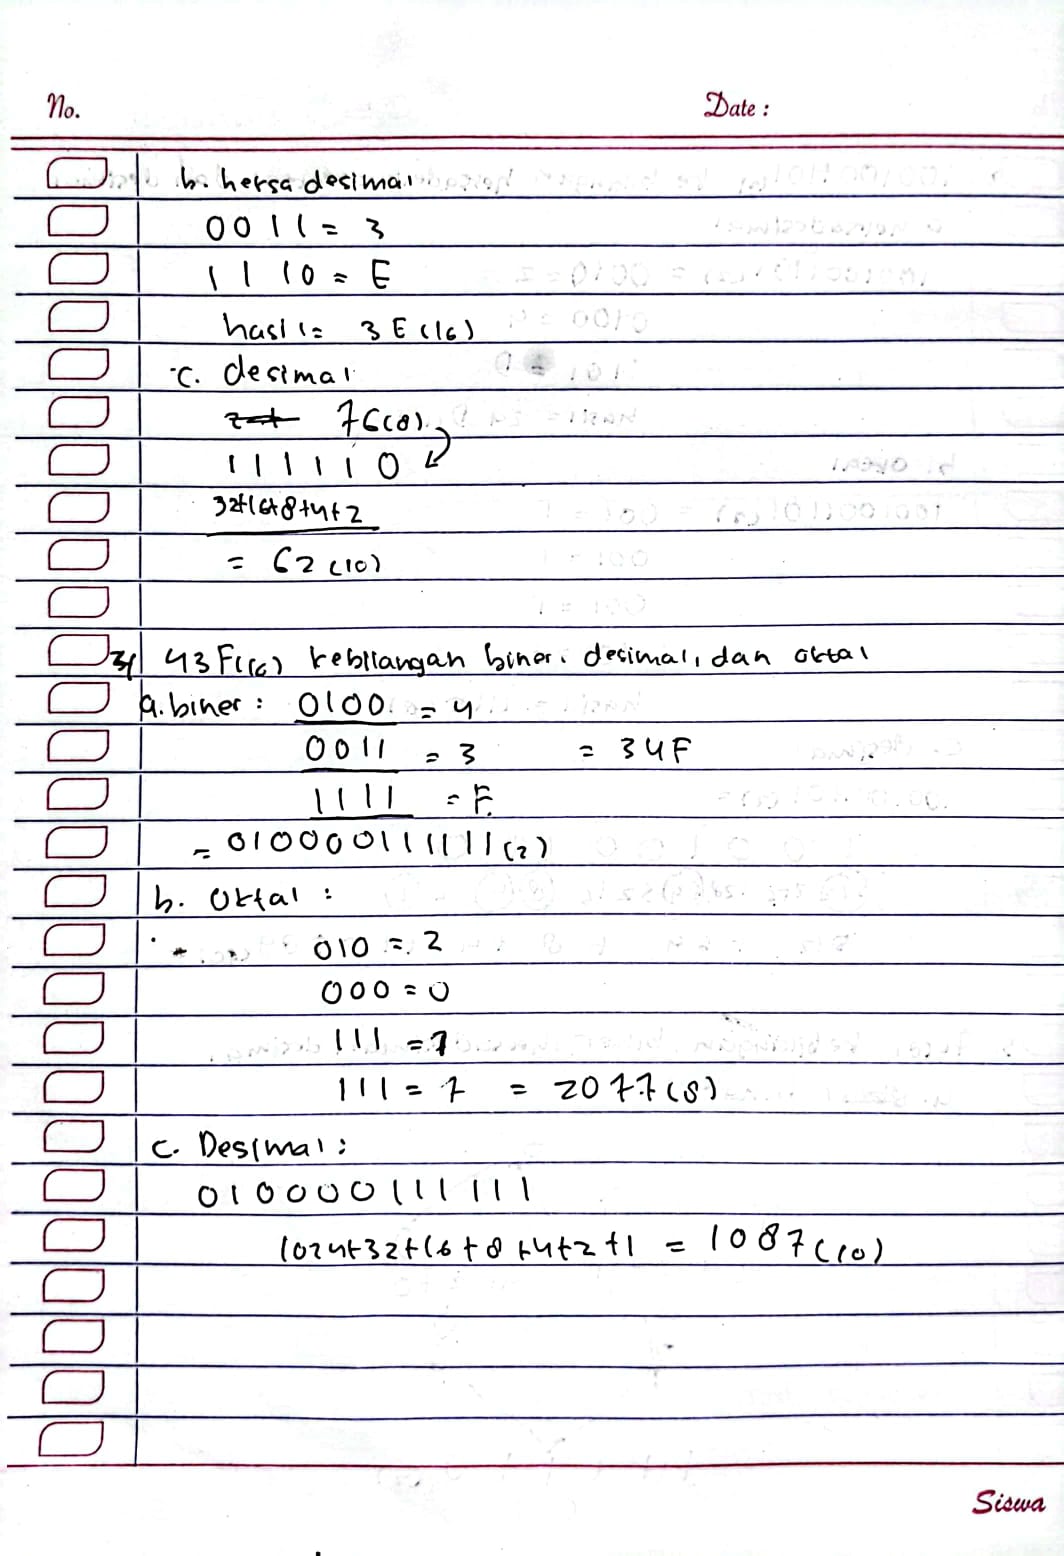 No. Date :
b. heksa desimal
0011 = 3
1110 = E
hasil = 3E(16)
c. desimal
76(8)
111110
32+16+8+4+2
= 62(10)
3/ 43F(16) kebilangan biner, desimal, dan oktal
a. biner : 0100 = 4
0011 = 3 = 34F
1111 = F.
= 010000111111(2)
b. Oktal :
010 = 2
000 = 0
111 = 7
111 = 7 = 2077(8)
c. Desimal :
010000111111
1024+32+16+8+4+2+1 = 1087(10)
Siswa